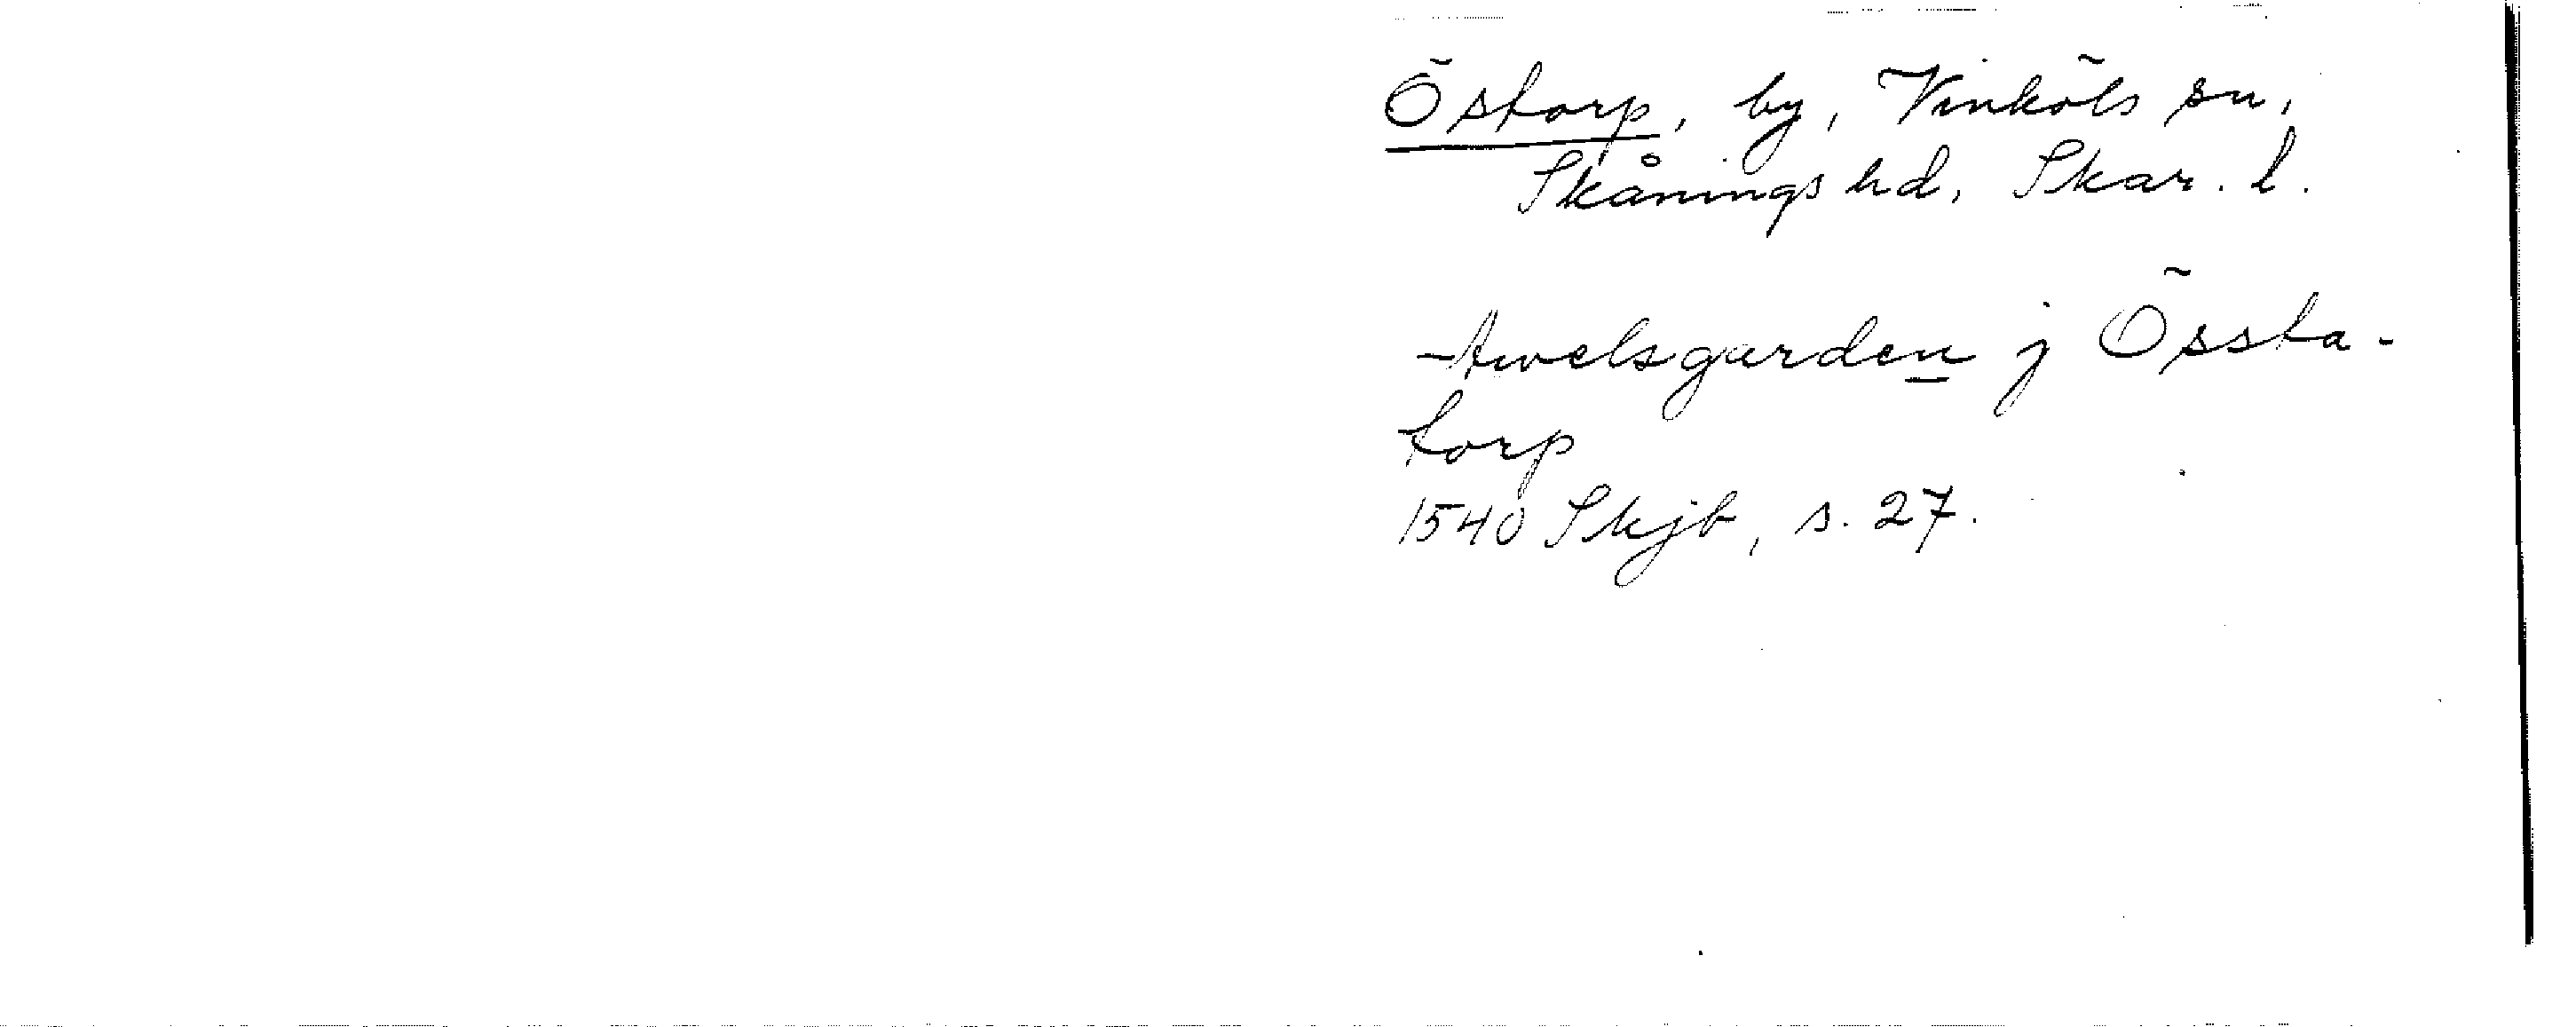 Östorp, by, Vinköls sn,
Skånings hd, Skar. l.
Awelsgarden j Össta-
torp
1540 Skjb, s. 27.